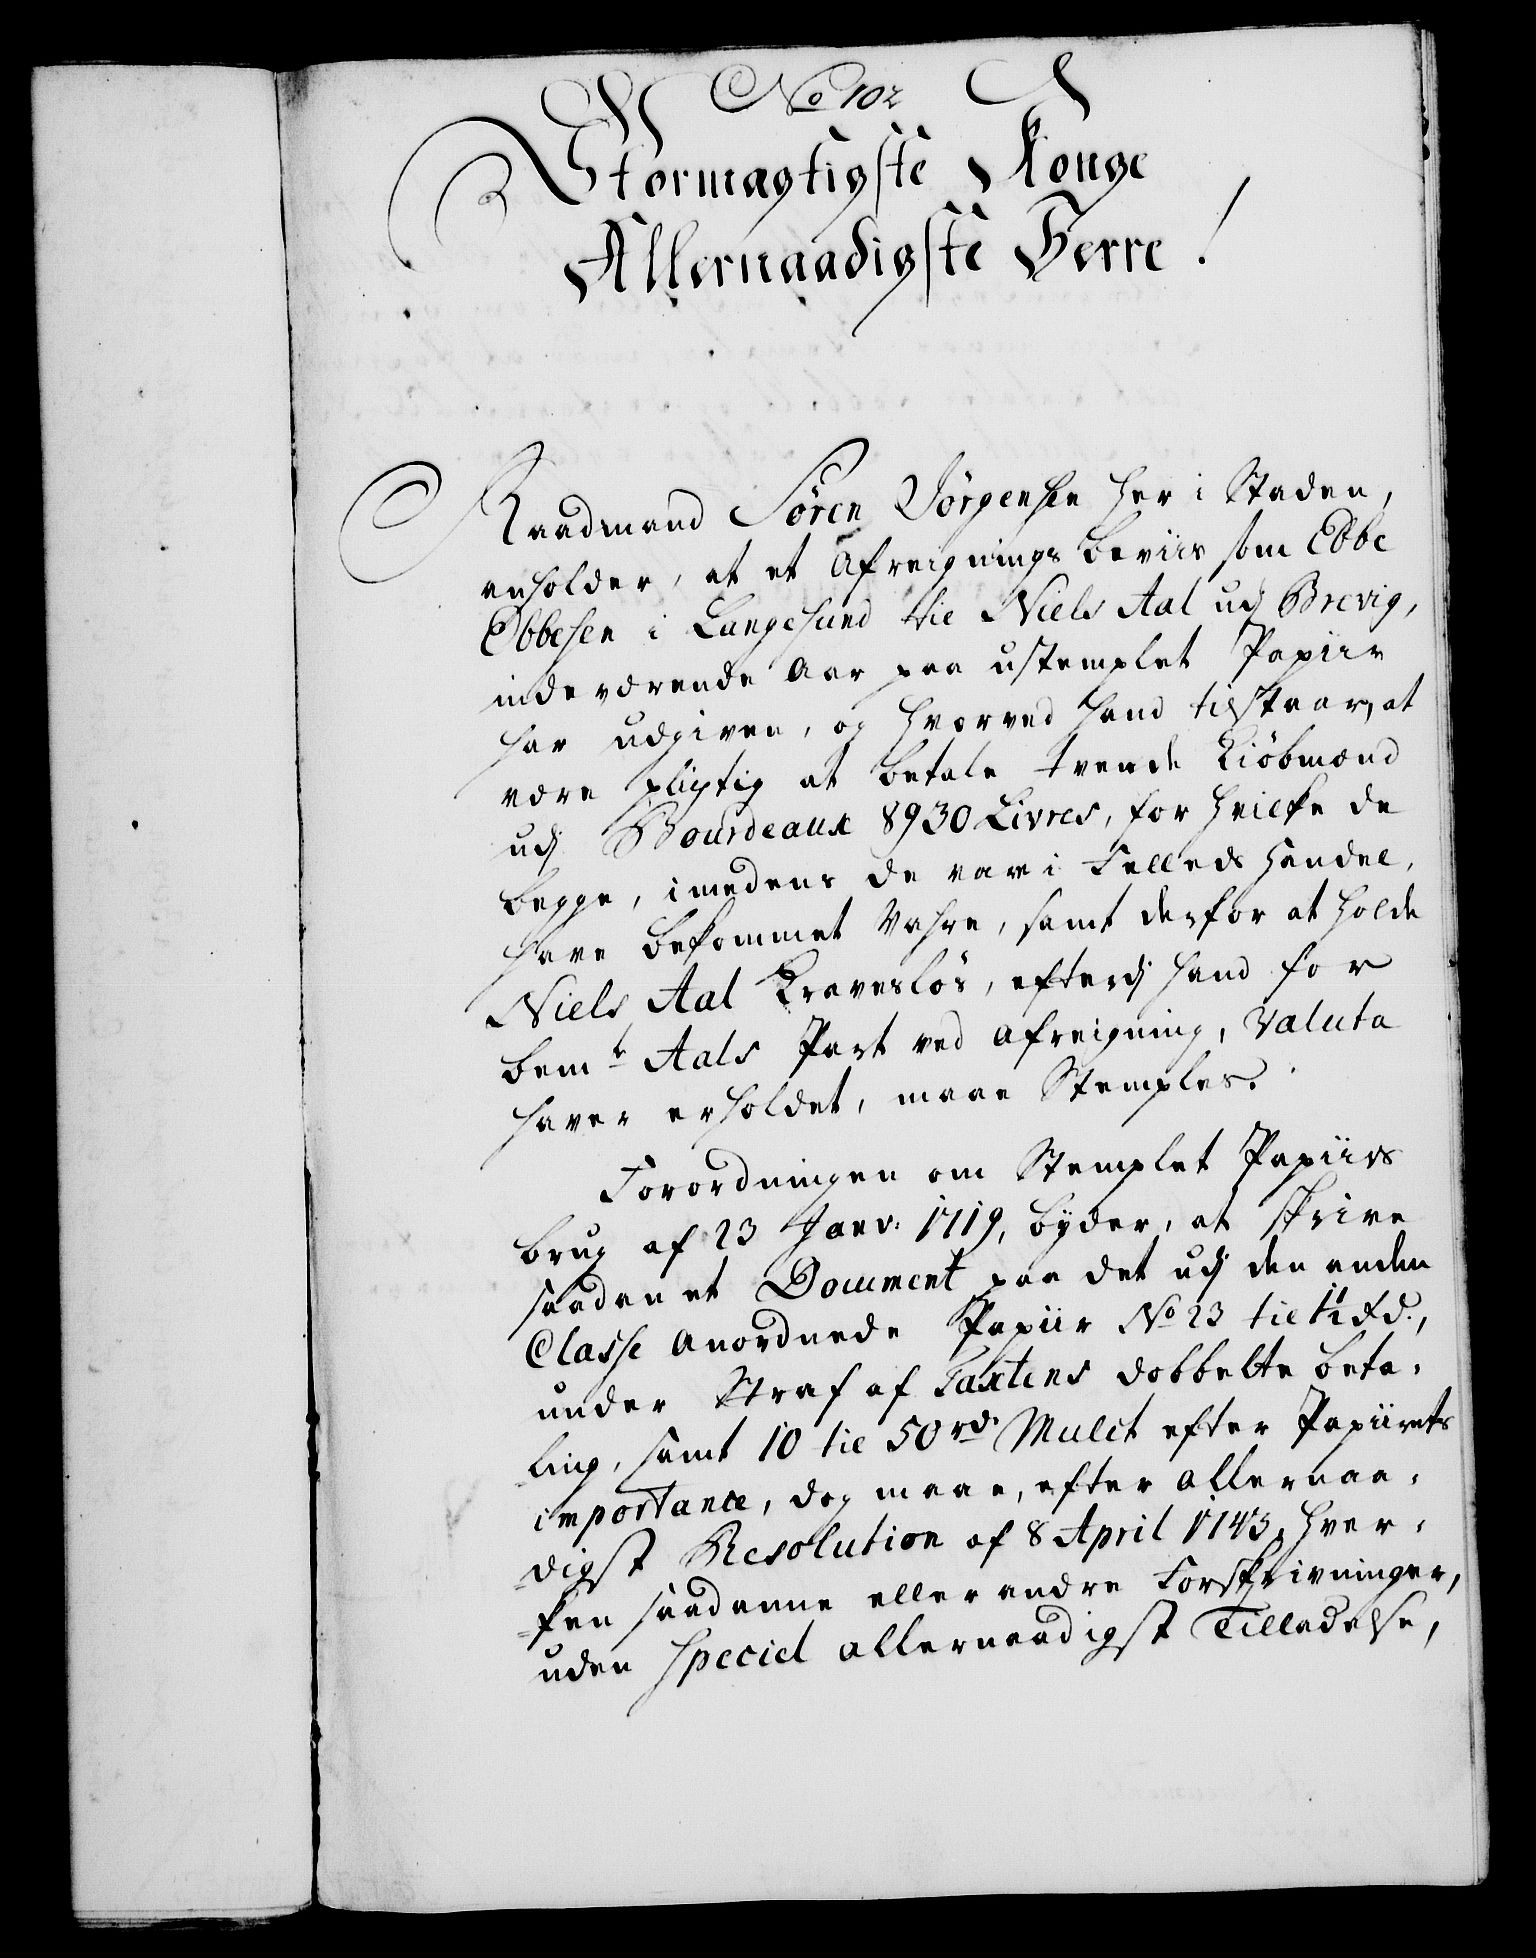 No 102
Stormagtigste Konge
Allernaadigste Herre!
Raadmand Sören Jörgensen her i Staden,
anholder, at et Afreignings beviis som Ebbe
Ebbesen i Langesund til Niels Aal udj Brevig,
indeværende Aar paa ustemplet Papiir
har udgiven, og hvorved hand tilstaar, at
være pligtig at betale tvende Kiöbmænd
udj Bourdeaux 8930 Livres, for hvilke de
begge, imedens de var i Fælleds Handel,
have bekommet Vahre, samt derfor at holde
Niels Aal Kravesløs, efterdj hand for
bemte Aals Part ved afreigning, Valuta
haver erholdet, maae Stemples.
Forordningen om Stemplet Papiirs
brug af 23 Janv: 1719, byder, at skrive
saadan et Document paa det udj den anden
Classe anordnede Papiir No 23 til 1½ rd.,
under Straf af Taxtens dobbelte beta-
ling, samt 10 til 50 rd. Mulct efter Papiirets
importance, dog maae, efter allernaa-
digst Resolution af 8 April 1743, hver-
ken saadanne eller andre Forskrivninger,
uden special allernaadigst Tilladelse,